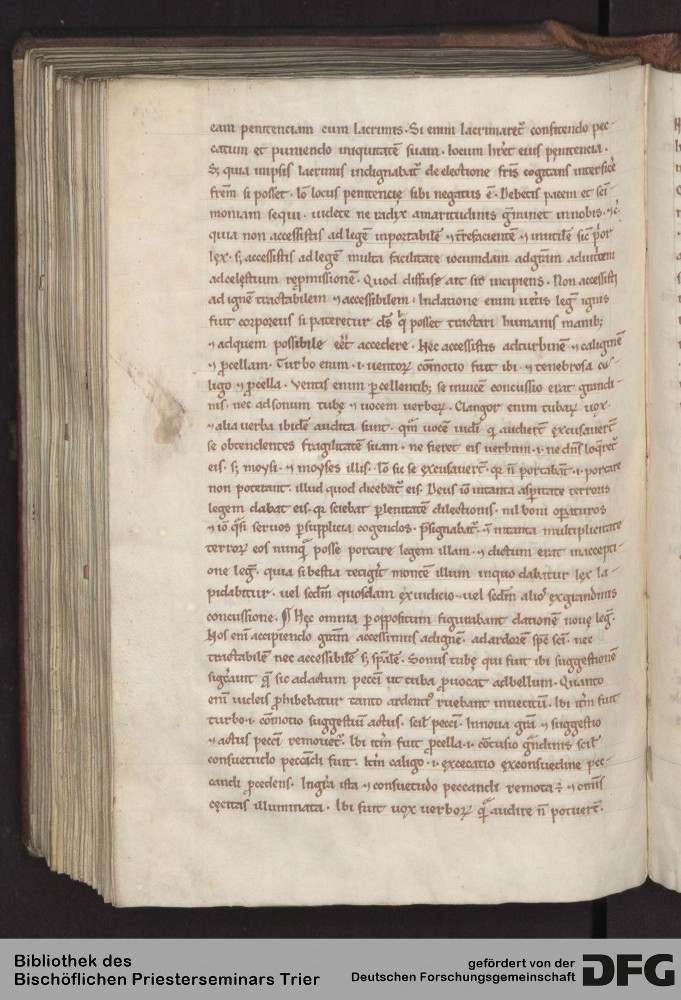 eam penitenciam cum lacrimis. Si enim lacrimaret᷑ confitendo pec-
catum et puniendo iniquitatem suam. locum hr̄et eius penitencia.
S; quia in ipsis lacrimis indignabat᷑ de electione fr̄is cogitans interficẽ
frēm si posset. Iō locus penitencię sibi negatus ē. Debetis pacem et sc̄i-
moniam sequi. uidete ne radix amaritudinis ḡminet in nobis.
quia non accessistis ad legē inportabilē ⁊ t̄refacientē ⁊ inutilē sic̄ p̄or
lex. s; accessistis ad legē multa facilitate iocundam ad gr̄am
ad celestium repromissionē. Quod diffuse ait sic̄ incipiens. Non accessistis
ad ignē tractabilem ⁊ accessibilem. In datione enim ueteris leḡ ignis
fuit corporeus si pateretur ds̄ q̄ posset tractari humanis manib;
⁊ ad quem possibile eēt accedere. Nec accessistis ad turbinē ⁊ caliginē
⁊ ꝓcellam. Turbo enim .i. uentoꝝ cōmotio fuit ibi. ⁊ tenebrosa ca-
ligo ⁊ ꝓcella. Ventis enim ꝑcellentib; se inuicē concussio erat grandi-
nis. nec ad sonum tubę ⁊ uocem uerboꝝ. Clangor enim tubaꝝ uox
⁊ alia uerba ibidē audita sunt. qm̄ uocē iudi q̄ audiert̄ excusauert̄
se obtendentes fragilitatē suam. ne fieret eis uerbum .i. ne dn̄s loq̄ret᷑
eis. s; moysi. ⁊ moyses illis. Iō sic se excusauert̄. qr n̄ portabāt .i. portare
non poterant. illud quod dicebat᷑ eis. Deus iō in tanta asp̄itate terroris
legem dabat eis. qr sciebat ꝑ lenitatē dilectionis. nil boni oꝑaturos
⁊ iō q̄si seruos ꝑ supplicia cogendos. p̄signabat᷑. in tanta multiplicitate
terroꝝ eos nunq̄ posse portare legem illam. ⁊ dictum erat in accepti-
one leḡ. quia si bestia tetigīt montē illum in quo dabatur lex la-
pidabitur. uel scdm̄ quosdam ex iudicio. uel scdm̄ alios ex grandinis
concussione. ¶ Hęc omnia ꝑ oppositum figurabant dationē nouę leḡ.
Nos enī accipiendo gr̄am accessimus ad ignē. ad ardorē sp̄c sc̄i. nec
tractabilē nec accessibilē s; sp̄alē. Sonus tubę qui fuit ibi suggestionē
signauit q̄ sic ad actum peccī ut tuba ꝓuocat ad bellum. Quanto
enī iudeis ꝓhibebatur tanto ardenti᷒ ruebant in uetitū. Ibi itm̄ fuit
turbo .i. cōmotio suggestiū actus. scil᷑ peccī. In noua gr̄a ⁊ suggestio
⁊ actus peccī remouet᷑. Ibi itm̄ fuit ꝓcella .i. cōcusio grādinis scil᷑
consuetudo peccandi fuit. Itm̄ caligo .i. excecatio ex consuetudine pec-
candi ꝓcedens. In gr̄a ista ⁊ consuetudo peccandi remota ⁊ omīs
cęcitas illuminata. Ibi fuit uox uerboꝝ q̄ audire n̄ potuert̄.
Bibliothek des
Bischöflichen Priesterseminars Trier
gefördert von der
Deutschen Forschungsgemeinschaft
DFG